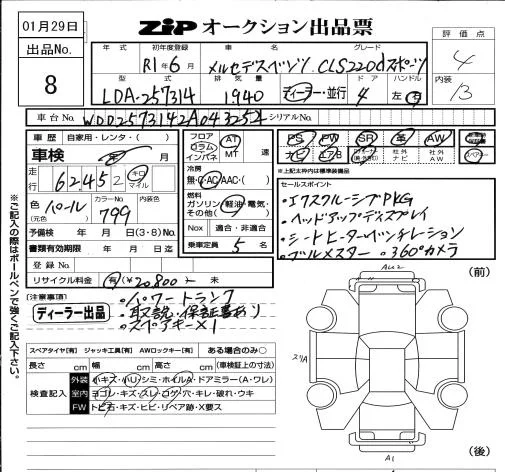 01月29日
ZIP オークション出品票
出品No.
8
評価点
4
内装
B
年式 初年度登録 車名 グレード
R1年6月 メルセデスベンツ CLS220d スポーツ
型式 排気量 ドア ハンドル
LDA-257314 1940 ディーラー・並行 4 左・右
車台No. WDD2573142A043254 シリアルNo.
車歴 自家用・レンタ・( )
車検 年 月
走行 62452 キロ マイル
色(元色) パール カラーNo. 799 内装色
予備検 年 月 日(3・8)No.
書類有効期限 年 月 日迄
登録No.
リサイクル料金 有(¥20,800) 未
フロア コラム インパネ AT MT 速
冷房 無・C・AC・AAC・( )
燃料 ガソリン・軽油・電気・その他( )
Nox 適合・非適合
乗車定員 5 名
PS PW SR 革 AW
ナビ エアB 社外ナビ 社外AW
※上記太枠内は標準装備品
セールスポイント
・エクスクルーシブPKG
・ヘッドアップディスプレイ
・シートヒーターベンチレーション
・ブルメスター ・360°カメラ
[注意事項]
ディーラー出品
・パワートランク
・取説・保証書あり
・スペアキー×1
スペアタイヤ[有] ジャッキ工具[有] AWロックキー[有] ある場合のみ○
長さ cm 幅 cm 高さ cm (車検証上の寸法)
検査記入
外装 小キズ・ハリ・シミ・ホイルA・ドアミラー(A・ワレ)
室内 ヨゴレ・キズ・スレ・コゲ・穴・キレ・破れ・ウキ
FW トビ石・キズ・ヒビ・リペア跡・X要ス
※ご記入の際はボールペンで強くご記入下さい。
(前)
(後)
A1